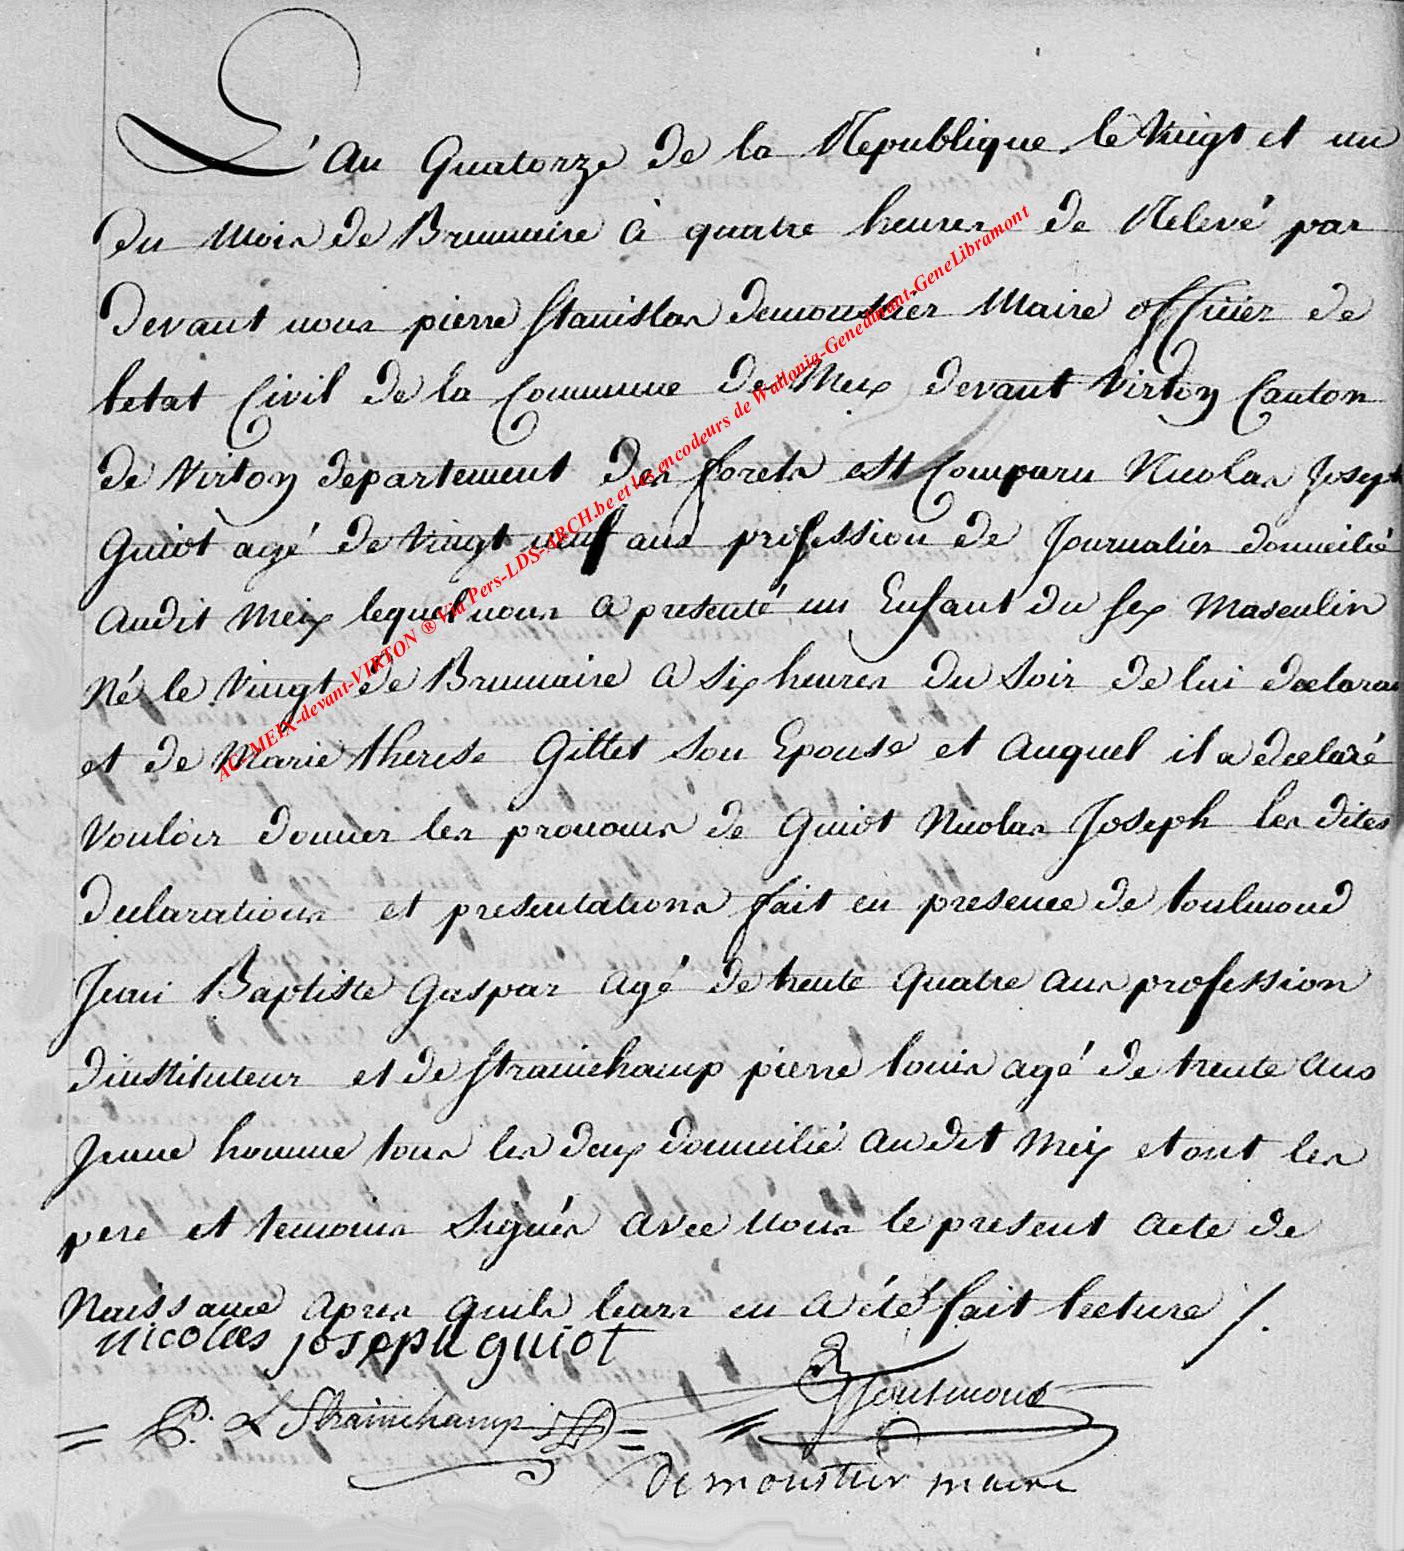 L'an Quatorze de la Republique le Vingt et un
du Mois de Brumaire à quatre heures de Relevé par
devant nous pierre Stanislas demoustier Maire officier de
letat Civil de la Commune de Meix devant Virton Canton
de Virton departement des forets est Comparu Nicolas Joseph
Guiot agé de Vingt neuf ans profession de Journalier domicilié
audit Meix lequel nous a presenté un Enfant du sex Masculin
Né le Vingt de Brumaire a six heures du Soir de lui declarant
et de Marie therese Gillet son Epouse et auquel il a declaré
Vouloir donner les pronoms de Guiot Nicolas Joseph les dites
declarations et presentations fait en presence de toulmond
Jean Baptiste Gaspar agé de trente quatre ans profession
dinstituteur et de Strainchamp pierre louis agé de trente ans
Jeune homme tous les deux domicilié audit Meix et ont les
pere et temoins Signés avec nous le present acte de
Naissance apres quils leurs en a été fait lecture /.
nicolas joseph guiot
P. L Strainchamp
JBG Toulmond
demoustier maire
AC-MEIX-devant-VIRTON ® Via Pers-LDS-ARCH.be et les encodeurs de Wallonia-Genedinant-GeneLibramont